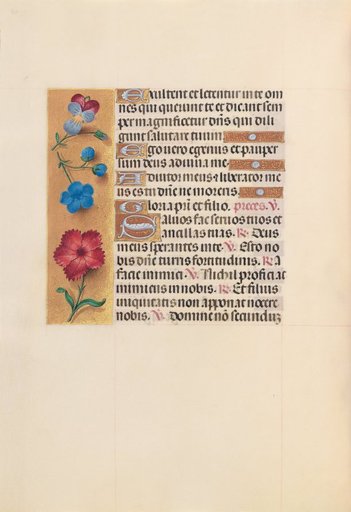 Exultent et letentur in te om
nes qui querunt te et dicant sem
per magnificetur dñs qui dili
gunt salutare tuum.
Ego vero egenus et pauper
sum deus adiuva me.
Adiutor meus et liberator me
us es tu dñe ne moreris.
Gloria pri et filio. preces. V.
Salvos fac servos tuos et
ancillas tuas. R. Deus
meus sperantes in te. V. Esto no
bis dñe turris fortitudinis. R. A
facie inimici. V. Nichil proficiat
inimicus in nobis. R. Et filius
iniquitatis non apponat nocere
nobis. V. Domine nõ secundũ